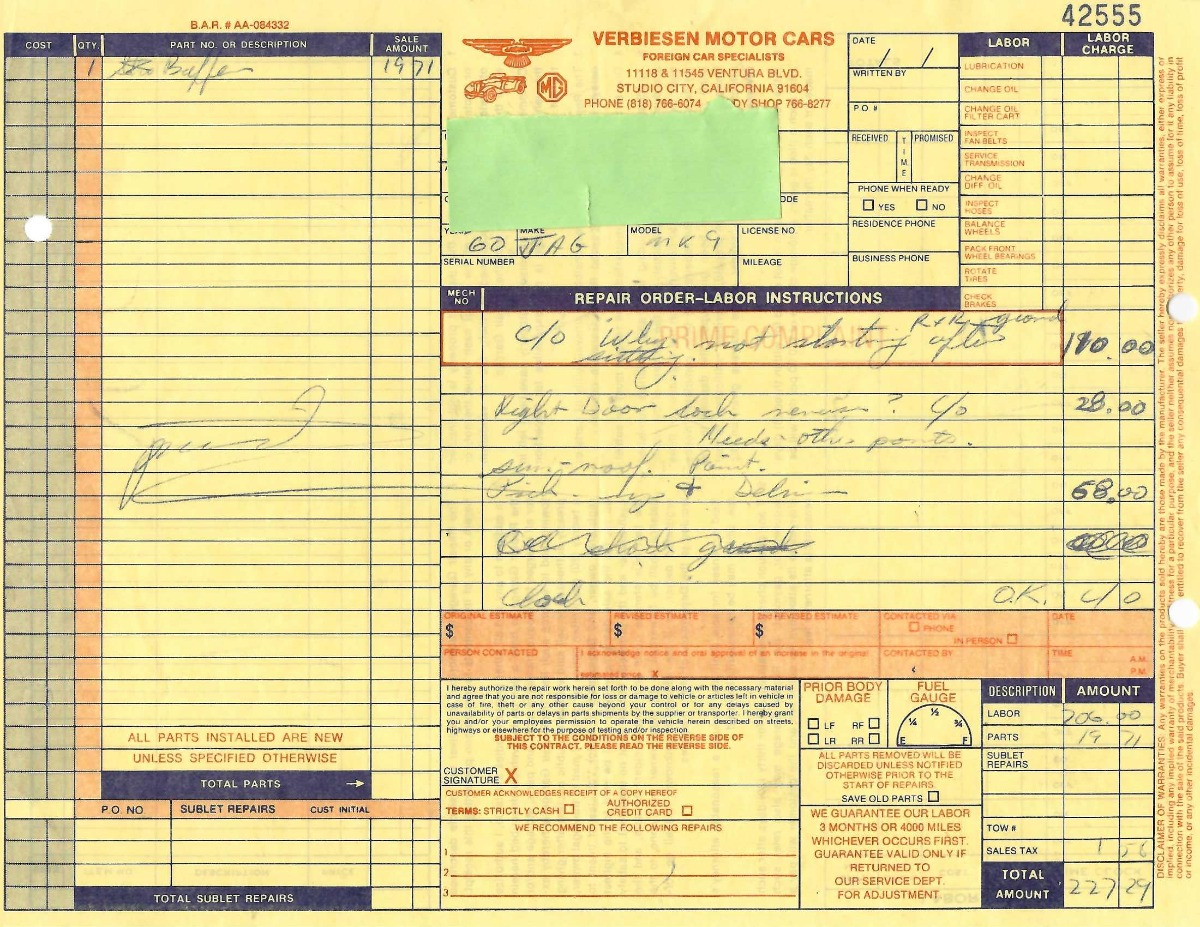 42555
B.A.R. # AA-084332
COST QTY. PART NO. OR DESCRIPTION SALE AMOUNT
1 Buffer 19 71
VERBIESEN MOTOR CARS
FOREIGN CAR SPECIALISTS
11118 & 11545 VENTURA BLVD.
STUDIO CITY, CALIFORNIA 91604
PHONE (818) 766-6074 DY SHOP 766-8277
JAGUAR
MG
DATE / /
WRITTEN BY
P O #
RECEIVED TIME PROMISED
PHONE WHEN READY
YES NO
RESIDENCE PHONE
BUSINESS PHONE
LABOR LABOR CHARGE
LUBRICATION
CHANGE OIL
CHANGE OIL FILTER CART
INSPECT FAN BELTS
SERVICE TRANSMISSION
CHANGE DIFF OIL
INSPECT HOSES
BALANCE WHEELS
PACK FRONT WHEEL BEARINGS
ROTATE TIRES
CHECK BRAKES
60 MAKE JAG MODEL MK 9 LICENSE NO.
SERIAL NUMBER MILEAGE
MECH NO REPAIR ORDER–LABOR INSTRUCTIONS
PRIME COMPLAINT
C/O Why not starting after R+R ground
sitting. 110.00
Right Door Lock C/O 28.00
Needs other parts.
sun-roof. Paint.
Pick up & 68.00
Clock O.K. C/O
ORIGINAL ESTIMATE $ REVISED ESTIMATE $ 2nd REVISED ESTIMATE $ CONTACTED VIA PHONE IN PERSON DATE
PERSON CONTACTED I acknowledge notice and oral approval of an increase in the original estimated price. X CONTACTED BY TIME A.M. P.M.
I hereby authorize the repair work herein set forth to be done along with the necessary material
and agree that you are not responsible for loss or damage to vehicle or articles left in vehicle in
case of fire, theft or any other cause beyond your control or for any delays caused by
unavailability of parts or delays in parts shipments by the supplier or transporter. I hereby grant
you and/or your employees permission to operate the vehicle herein described on streets,
highways or elsewhere for the purpose of testing and/or inspection
SUBJECT TO THE CONDITIONS ON THE REVERSE SIDE OF
THIS CONTRACT. PLEASE READ THE REVERSE SIDE.
CUSTOMER SIGNATURE X
CUSTOMER ACKNOWLEDGES RECEIPT OF A COPY HEREOF
TERMS: STRICTLY CASH AUTHORIZED CREDIT CARD
WE RECOMMEND THE FOLLOWING REPAIRS
1
2
3
PRIOR BODY DAMAGE
LF RF
LR RR
FUEL GAUGE
E ¼ ½ ¾ F
ALL PARTS REMOVED WILL BE
DISCARDED UNLESS NOTIFIED
OTHERWISE PRIOR TO THE
START OF REPAIRS
SAVE OLD PARTS
WE GUARANTEE OUR LABOR
3 MONTHS OR 4000 MILES
WHICHEVER OCCURS FIRST.
GUARANTEE VALID ONLY IF
RETURNED TO
OUR SERVICE DEPT.
FOR ADJUSTMENT
DESCRIPTION AMOUNT
LABOR 206.00
PARTS 19 71
SUBLET REPAIRS
TOW #
SALES TAX 1 56
TOTAL AMOUNT 227 29
ALL PARTS INSTALLED ARE NEW
UNLESS SPECIFIED OTHERWISE
TOTAL PARTS →
P.O. NO SUBLET REPAIRS CUST INITIAL
TOTAL SUBLET REPAIRS
DISCLAIMER OF WARRANTIES. Any warranties on the products sold hereby are those made by the manufacturer. The seller hereby expressly disclaims all warranties, either express or
implied, including any implied warranty of merchantability
connection with the sale of the said products. Buyer shall entitled to recover from the seller any consequential damages damage for loss of use, loss of time, loss of profit
or income, or any other incidental damages